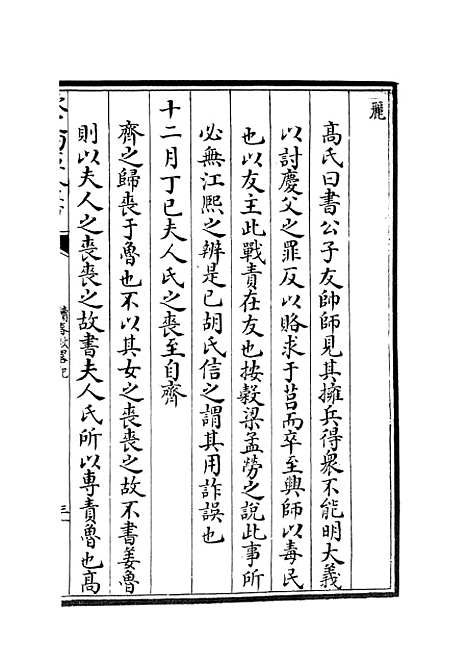 麗
高氏曰書公子友帥師見其擁兵得衆不能明大義
以討慶父之罪反以賂求于莒而卒至興師以毒民
也以友主此戰責在友也按穀梁孟勞之說此事所
必無江熙之辨是已胡氏信之謂其用詐誤也
十二月丁巳夫人氏之喪至自齊
齊之歸喪于魯也不以其女之喪喪之故不書姜魯
則以夫人之喪喪之故書夫人氏所以專責魯也高
讀春秋畧記